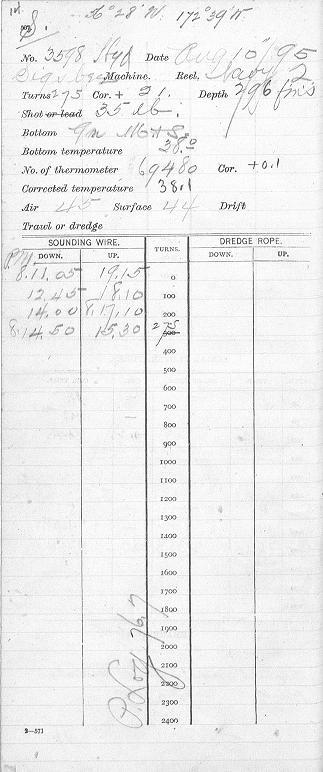 No. 3598 Hyd Date Aug 10/95
Sigsbee Machine. Reel, Navy 2
Turns 275 Cor. + 21. Depth 296 fms
Shot or lead 35 lb.
Bottom gn M & S.
Bottom temperature 38.0
No. of thermometer 69480 Cor. +0.1
Corrected temperature 38.1
Air 45 Surface 44 Drift
Trawl or dredge
SOUNDING WIRE. TURNS. DREDGE ROPE.
DOWN. UP. DOWN. UP.
P.M.
8.11.05 19.15 0
12.45 18.10 100
14.00 8.17.10 200
8.14.50 15.30 275 300
400
500
600
700
800
900
1000
1100
1200
1300
1400
1500
1600
1700
1800
1900
2000
2100
2200
2300
2400
P. Log 76.7
2—571